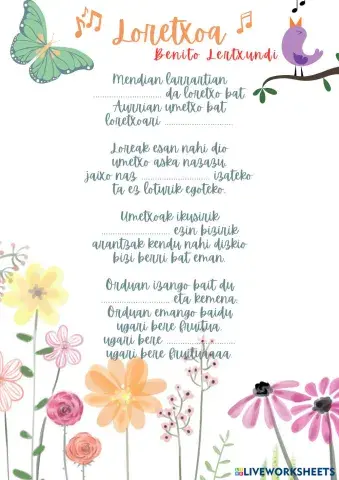 Loretxoa
Benito Lertxundi
Mendian larrartian
........................ da loretxo bat.
Aurrian umetxo bat
loretxoari ........................
Loreak esan nahi dio
umetxo aska nazazu,
jaixo naz ........................ izateko
ta ez loturik egoteko.
Umetxoak ikusirik
........................ ezin bizirik
arantzak kendu nahi dizkio
bizi berri bat eman.
Orduan izango bait du
........................ eta kemena.
Orduan emango baidu
ugari bere fruitua.
ugari bere ........................
ugari bere fruituaaaa
LIVEWORKSHEETS